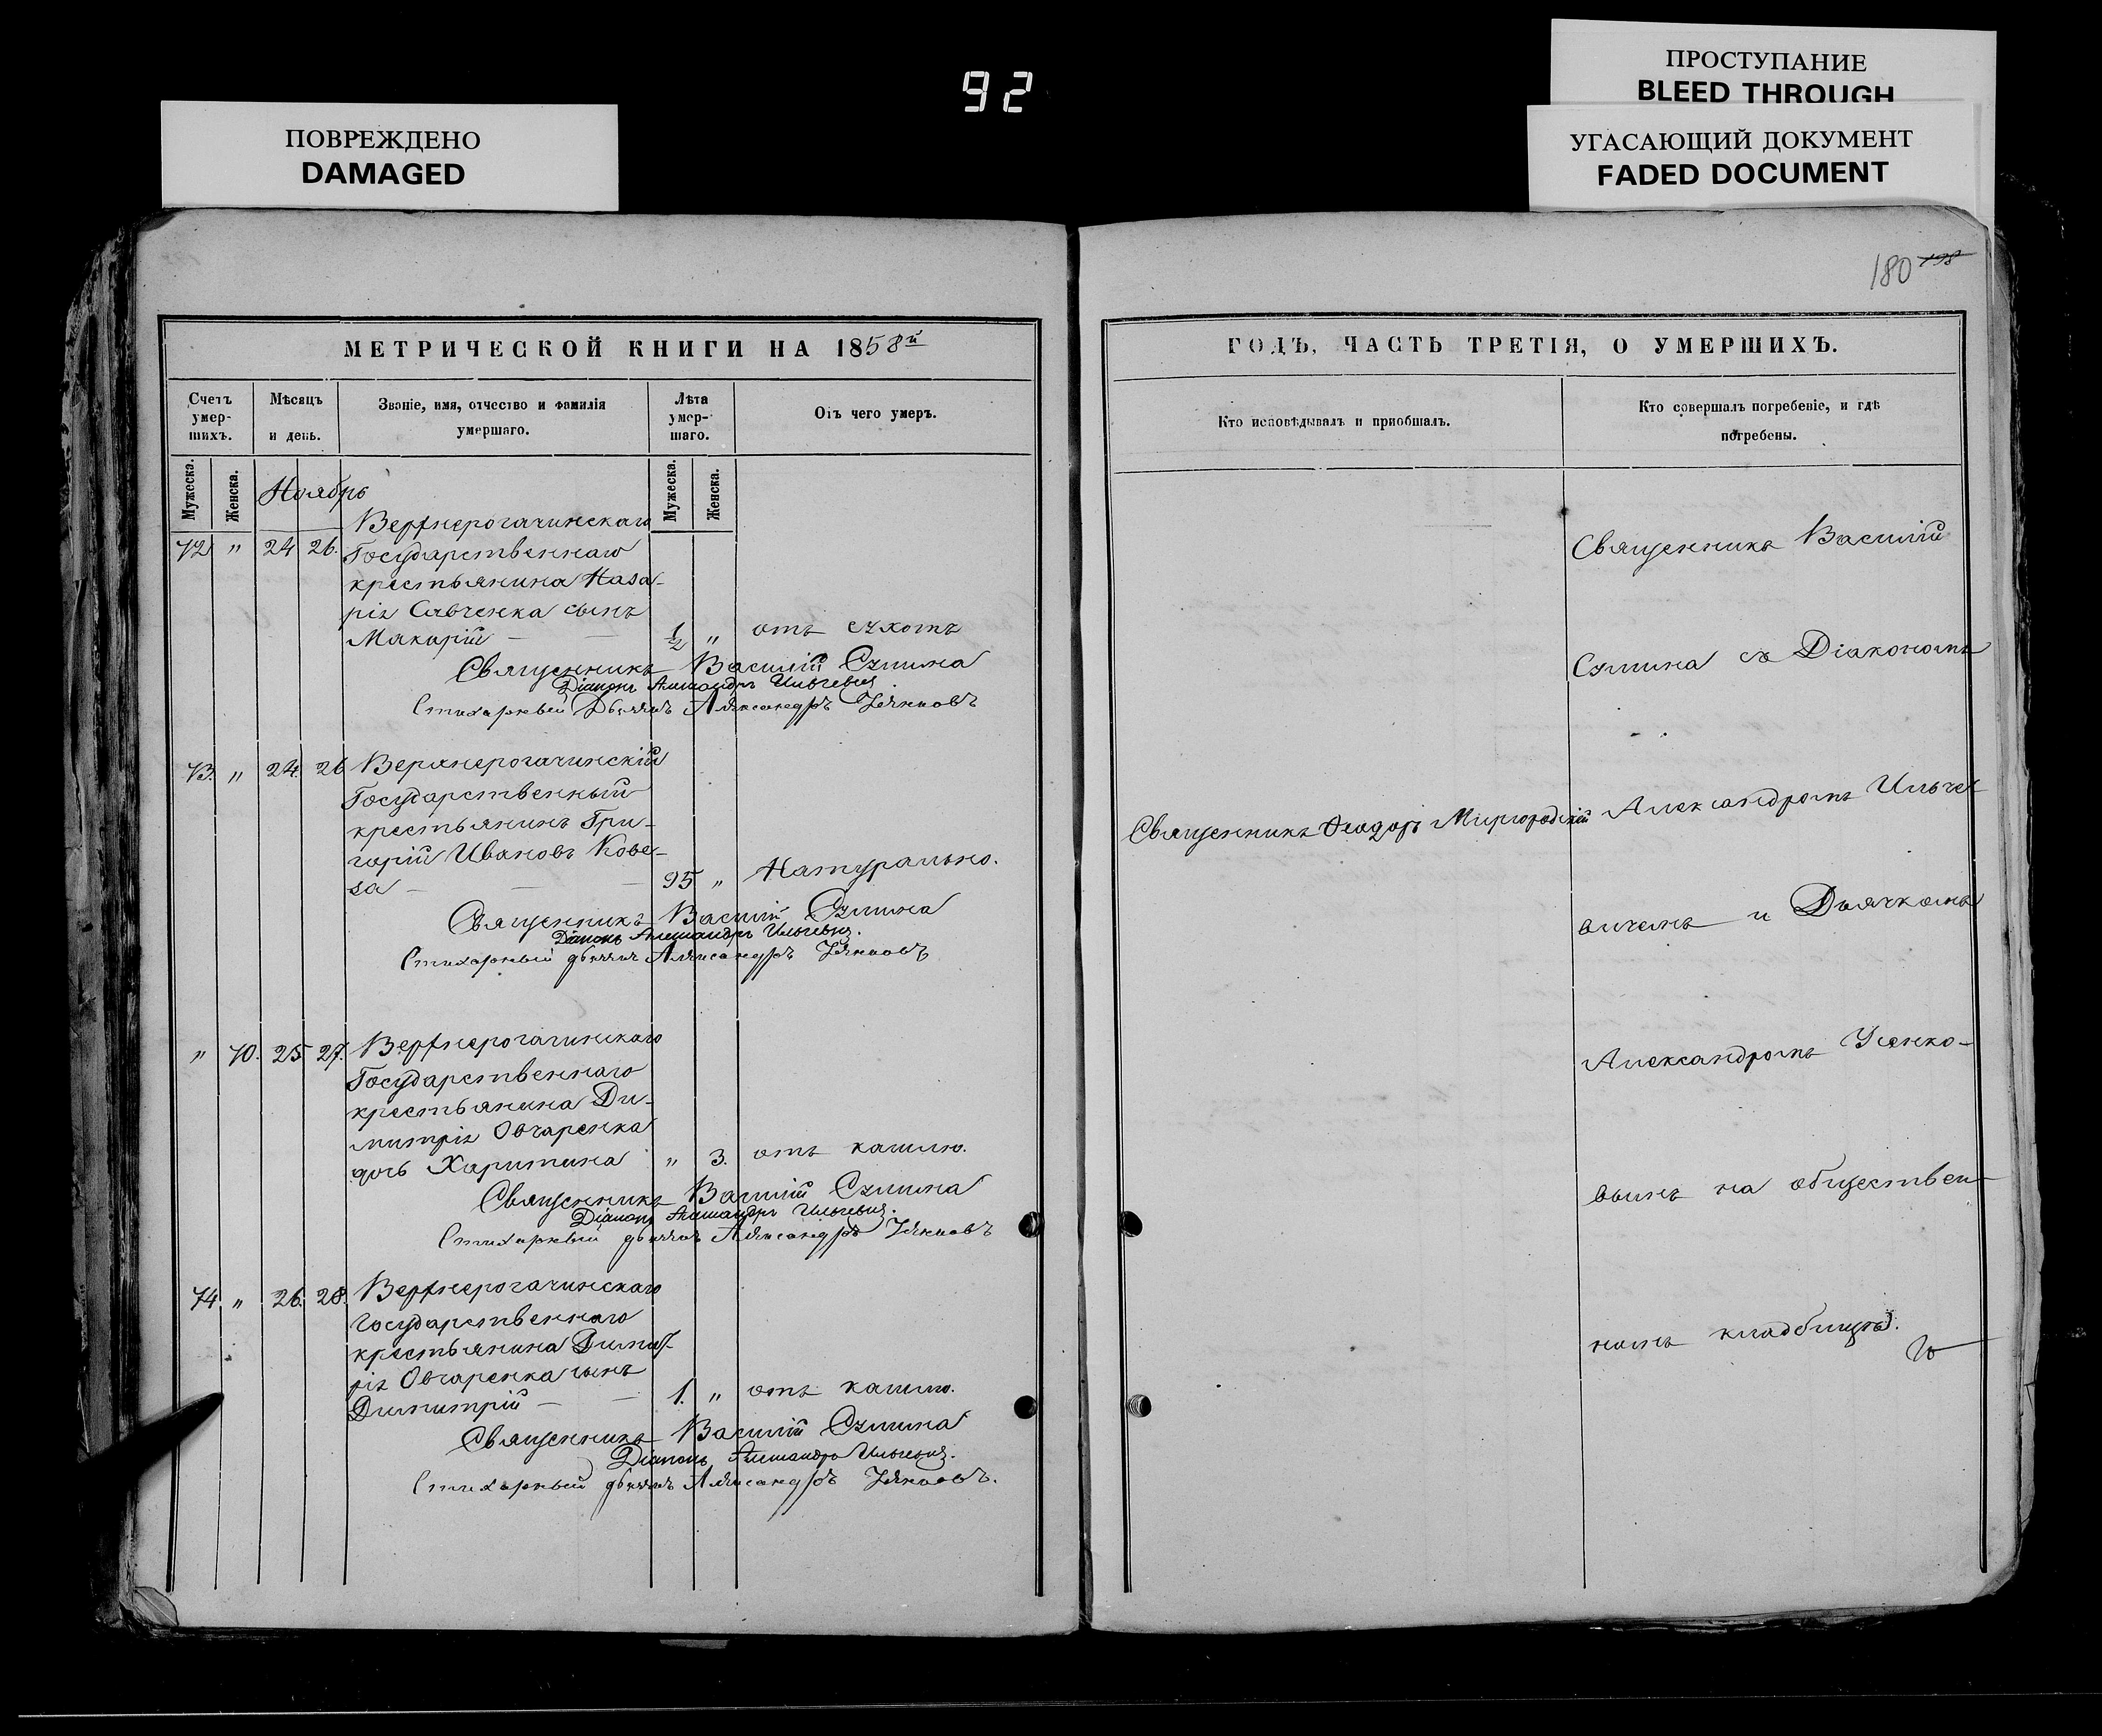 92
ПОВРЕЖДЕНО
DAMAGED
ПРОСТУПАНИЕ
BLEED THROUGH
УГАСАЮЩИЙ ДОКУМЕНТ
FADED DOCUMENT
180 198
МЕТРИЧЕСКОЙ КНИГИ НА 1858й
Счетъ умер-шихъ.
Мѣсяцъ и день.
Званіе, имя, отчество и фамилія умершаго.
Лѣта умер-шаго.
Отъ чего умеръ.
Мужеска. Женска.
Мужеска. Женска.
Ноябрь
Верхнерогачинскаго
72 " 24 26. Государственнаго
крестьянина Наза-
рія Савченка сынъ
Макарій — — 1/2 " отъ сухотъ
Священникъ Василій
Діаконъ Александръ Ильчевич
Стихарный Дьячекъ Александръ
73. " 24. 26 Верхнерогачинскій
Государственный
крестьянинъ Гри-
горій Ивановъ Кове-
за — — — 95 " Натурально.
Священникъ Василій
Діаконъ Александръ Ильчевич.
Стихарный дьячекъ Александръ
" 70. 25 27. Верхнерогачинскаго
Государственнаго
крестьянина Ди-
митрія Овчаренка
дочь Харитина " 3. отъ кашлю.
Священникъ Василій
Діаконъ Александръ Ильчевич.
Стихарный дьячекъ Александръ
74 " 26. 28. Верхнерогачинскаго
государственнаго
крестьянина Димит-
рія Овчаренка сынъ
Димитрій — — 1. " отъ кашлю.
Священникъ Василій
Діаконъ Александръ Ильчевич.
Стихарный дьячекъ Александръ
ГОДЪ, ЧАСТЬ ТРЕТІЯ, О УМЕРШИХЪ.
Кто исповѣдывалъ и пріобщалъ.
Кто совершалъ погребеніе, и гдѣ погребены.
Священникъ Ѳеодоръ Миргородскій
Священникъ Василій
съ Діакономъ
Александромъ Ильче-
вичемъ и Дьячкомъ
Александромъ Усенко-
вымъ на обществен-
номъ кладбищѣ.